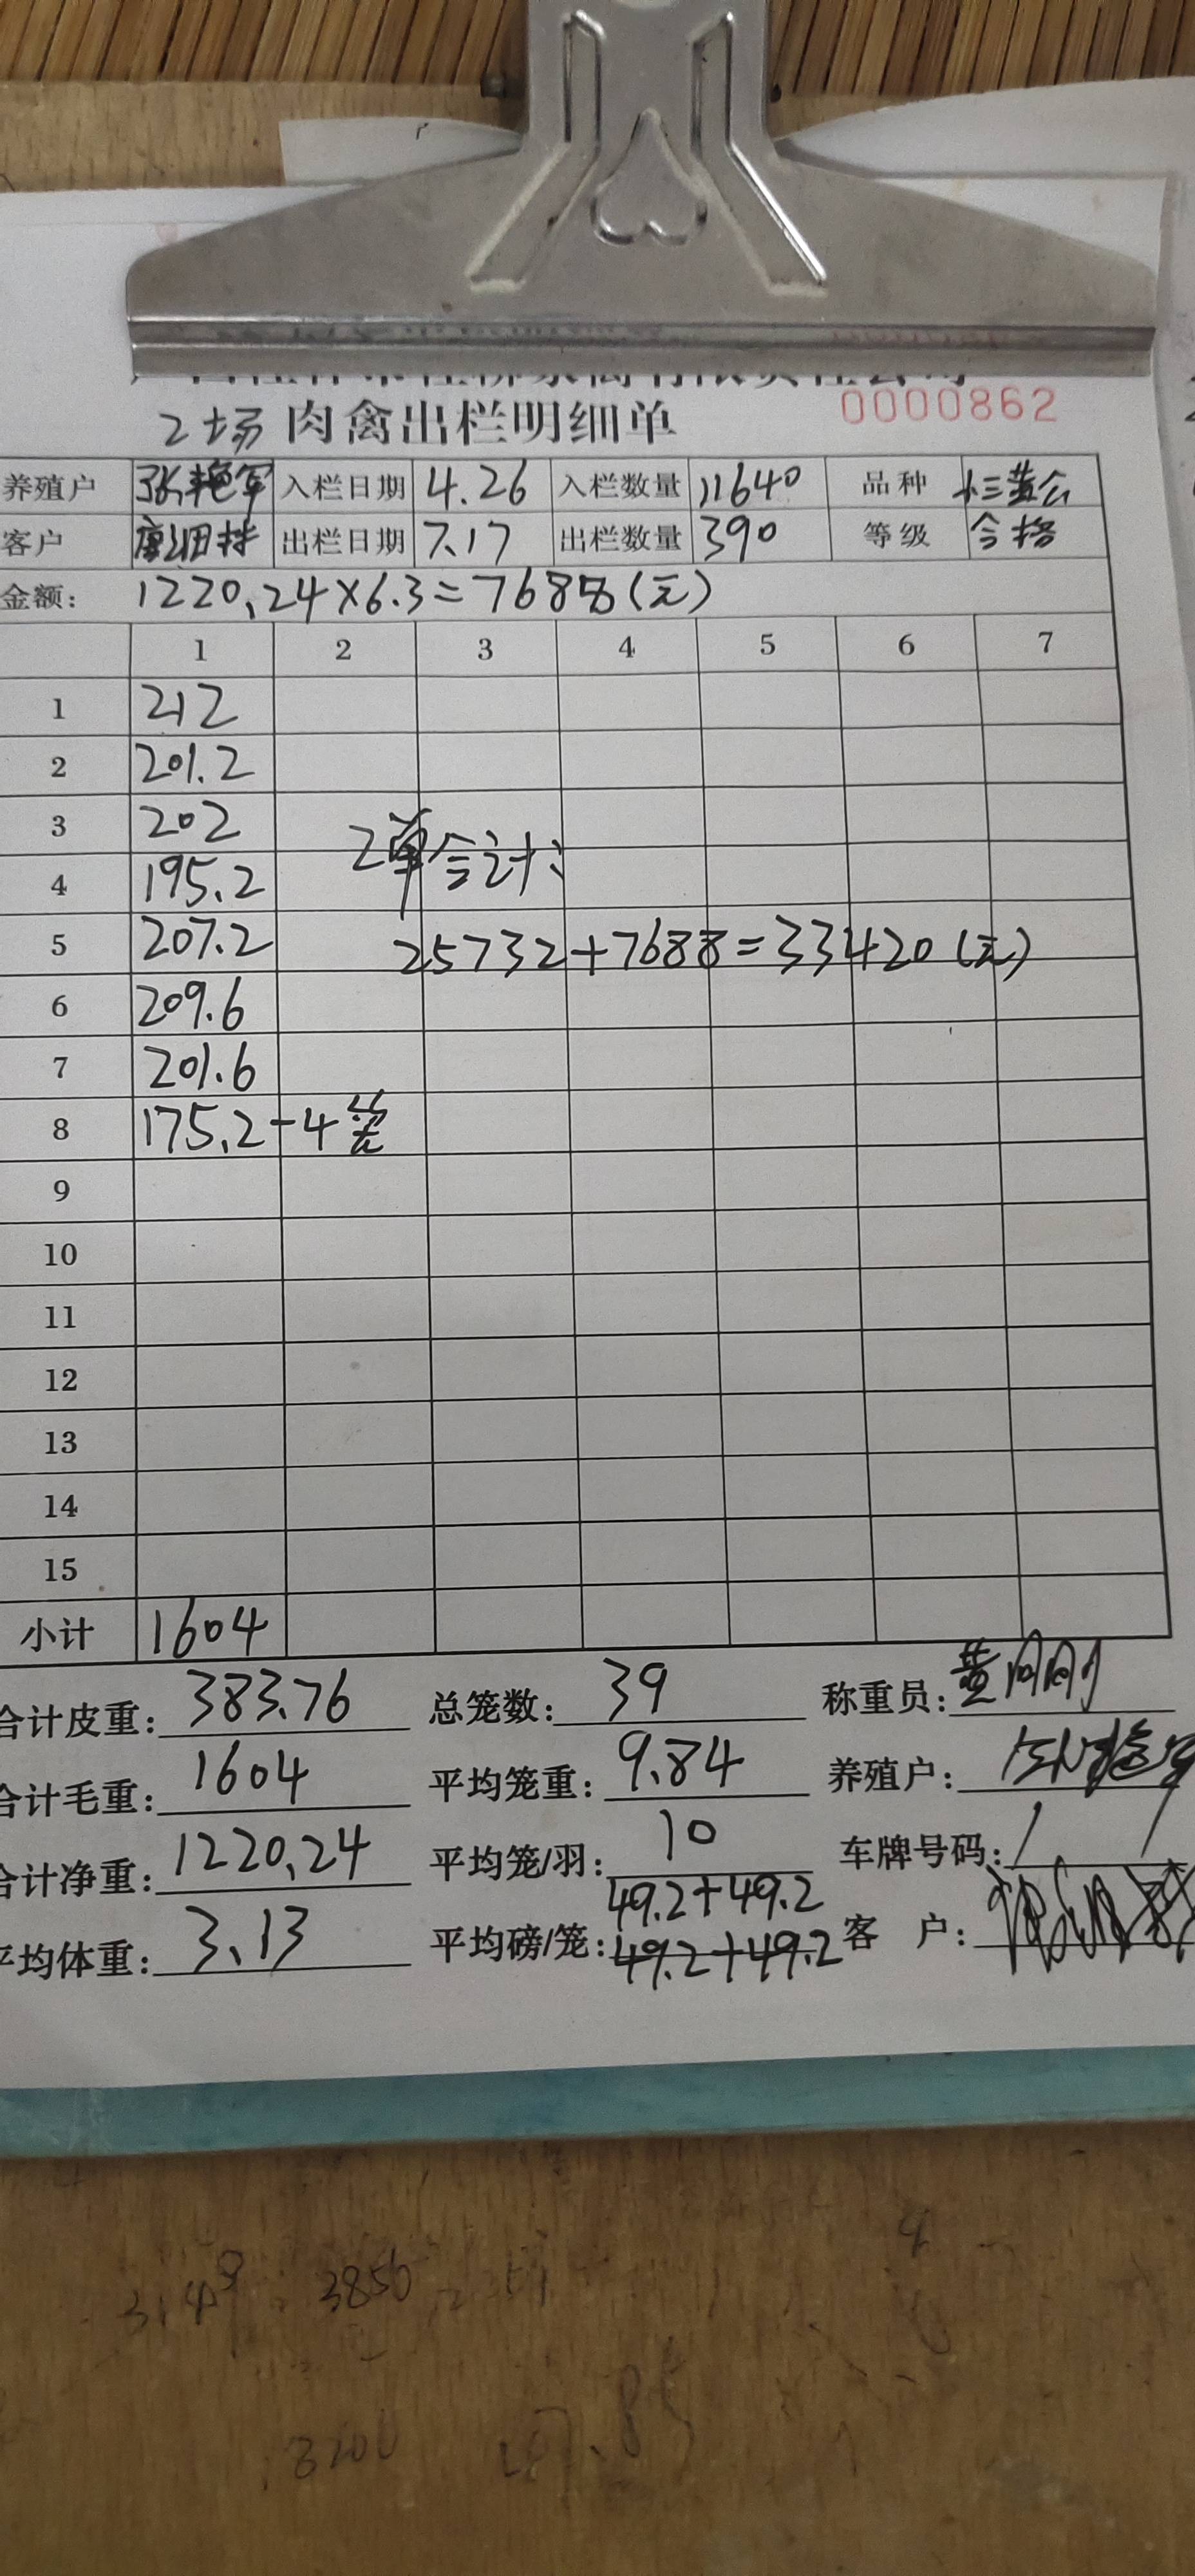 0000862
2场 肉禽出栏明细单
养殖户 张艳军 入栏日期 4.26 入栏数量 11640 品种 土三黄公
客户 出栏日期 7.17 出栏数量 390 等级 合格
金额: 1220.24×6.3=7688(元)
1 2 3 4 5 6 7
1 212
2 201.2
3 202
2单合计:
4 195.2
5 207.2 25732+7688=33420(元)
6 209.6
7 201.6
8 175.2-4笼
9
10
11
12
13
14
15
小计 1604
合计皮重: 383.76 总笼数: 39 称重员:
合计毛重: 1604 平均笼重: 9.84 养殖户:
合计净重: 1220.24 平均笼/羽: 10 车牌号码: /
49.2+49.2
平均体重: 3.13 平均磅/笼: 49.2+49.2 客 户: